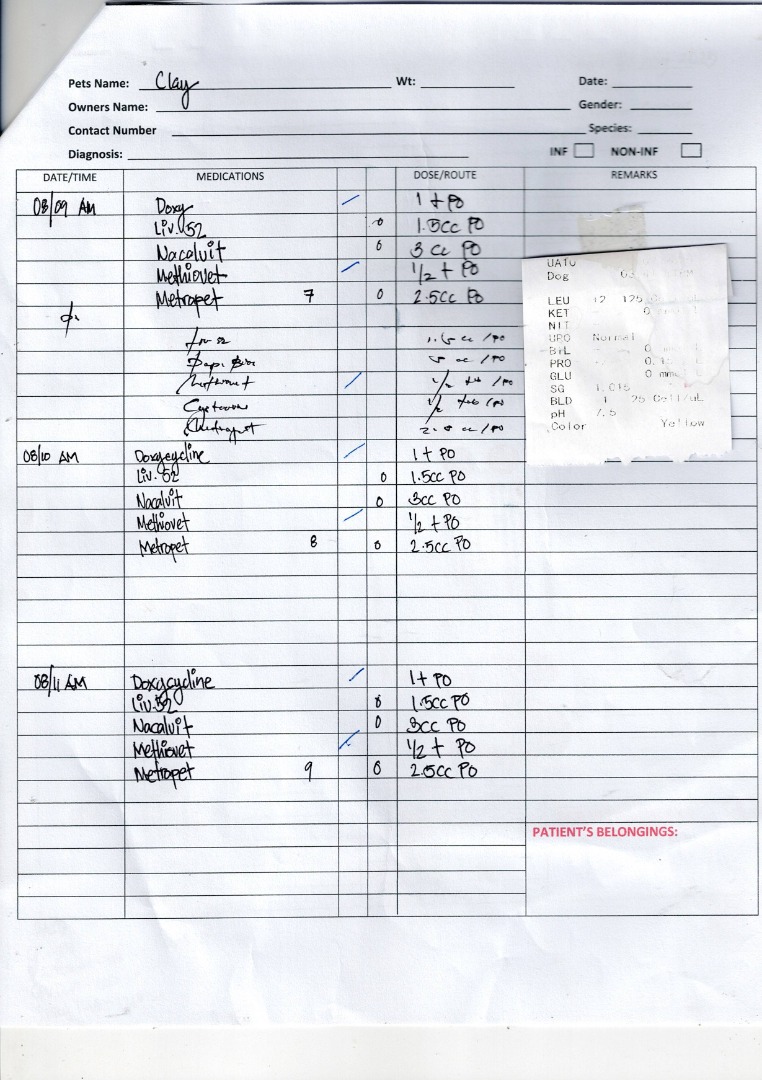 Pets Name: Clay Wt: Date:
Owners Name: Gender:
Contact Number Species:
Diagnosis: INF NON-INF
DATE/TIME MEDICATIONS DOSE/ROUTE REMARKS
08/09 AM Doxy 1 t PO
Liv. 52 0 1.5cc PO
Nacalvit 0 3 cc PO
Methiovet 1/2 t PO
Metropet 7 0 2.5cc PO
1.5 cc /PO
cc /PO
1/2 tab /PO
1/2 tab /PO
2.5 cc /PO
UATO
Dog
LEU 12 125
KET 0
NIT
URO Normal
BIL 0
PRO
GLU 0
SG 1.015
BLD 1 25 Cell/uL
pH 7.5
Color Yellow
08/10 AM Doxycycline 1 t PO
Liv. 52 0 1.5cc PO
Nacalvit 0 3cc PO
Methiovet 1/2 t PO
Metropet 8 0 2.5cc PO
08/11 AM Doxycycline 1 t PO
Liv.52 0 1.5cc PO
Nacalvit 0 3cc PO
Methiovet 1/2 t PO
Metropet 9 0 2.5cc PO
PATIENT'S BELONGINGS: